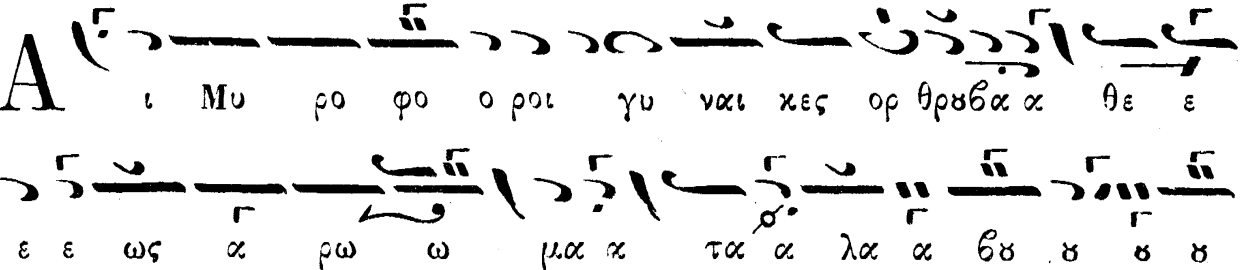 Α ι Μυ ρο φο ο ροι γυ ναι κες ορ θρȣ βα α θε ε
ε ε ως α ρω ω μα α τα α λα α βȣ ȣ ȣ ȣ